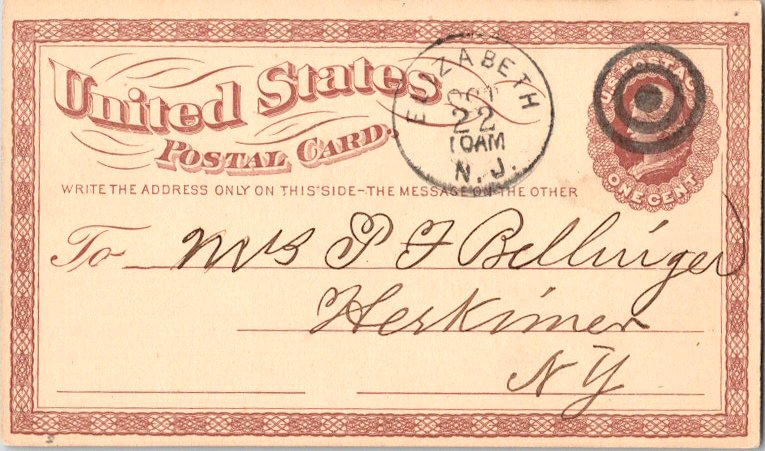 United States
POSTAL CARD.
WRITE THE ADDRESS ONLY ON THIS SIDE-THE MESSAGE ON THE OTHER
ELIZABETH
OCT
22
10AM
N. J.
U.S. POSTAGE
ONE CENT
To Mrs P F Bellinger
Herkimer
NY